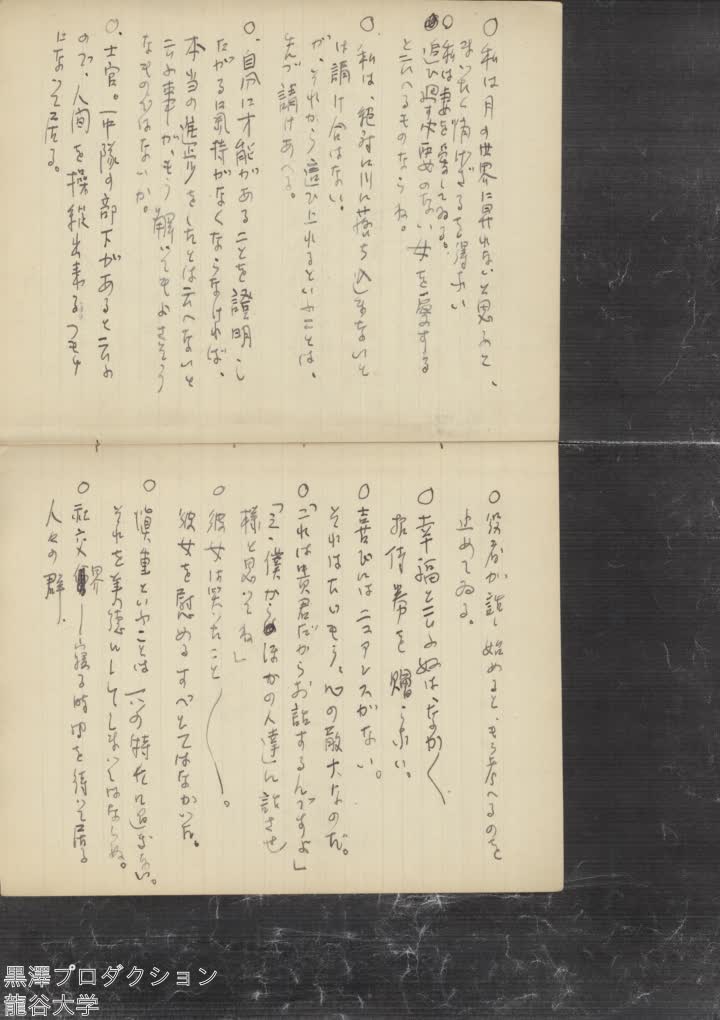 〇 私は月の世界に昇れないと思ふと、
まつたく情けなさを得ない
〇 私は妻を愛してゐる。
追ひ廻す必要のない女を愛する
と云へるものならね。
〇 私は、絶対に川に落ち込まないと
は請け合はない。
が、それから這ひ上れるといふことは、
請けあへる。
〇 自分に才能があることを證明し
たがる気持がなくならなければ、
本当の進歩をしたとは云へないと
云ふ事が、もう解つてもよささう
なものではないか。
〇 士官。一中隊の部下があると云ふ
ので、人間を操縦出来るつもり
になつて居る。
〇 役者が話し始めると、もう考へるのを
止めてゐる。
〇 幸福と云ふ奴は、なかなか
招待券を贈らない。
〇 喜びにはニュアンスがない。
それはたいもう。心の散大なのだ。
〇「これは貴君だからお話するんですよ」
「え、僕からほかの人達に話させ
様と思つてね」
〇 彼女は笑つたこと。
彼女を慰めるすべとてはなかつた。
〇 慎重といふことは一つの特色に過ぎない。
それを美徳にしてしまつてはならぬ。
〇 社交界―寝る時間を待つて居る
人々の群.
黒澤プロダクション
龍谷大学